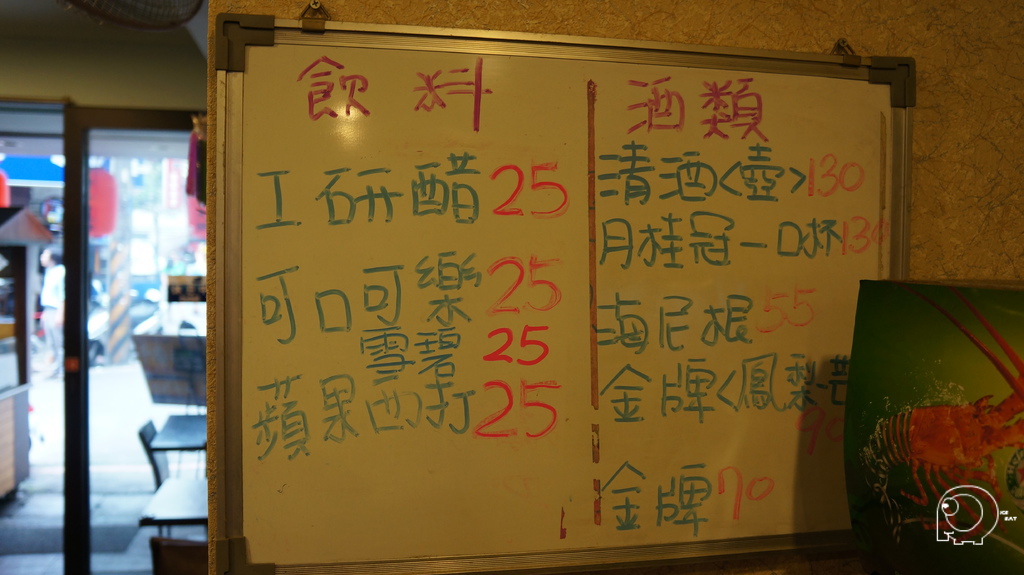 飲料
工研醋25
可口可樂25
雪碧25
蘋果西打25
酒類
清酒<壺>130
月桂冠一口杯130
海尼根55
金牌<鳳梨芒
90
金牌70
ICE
EAT